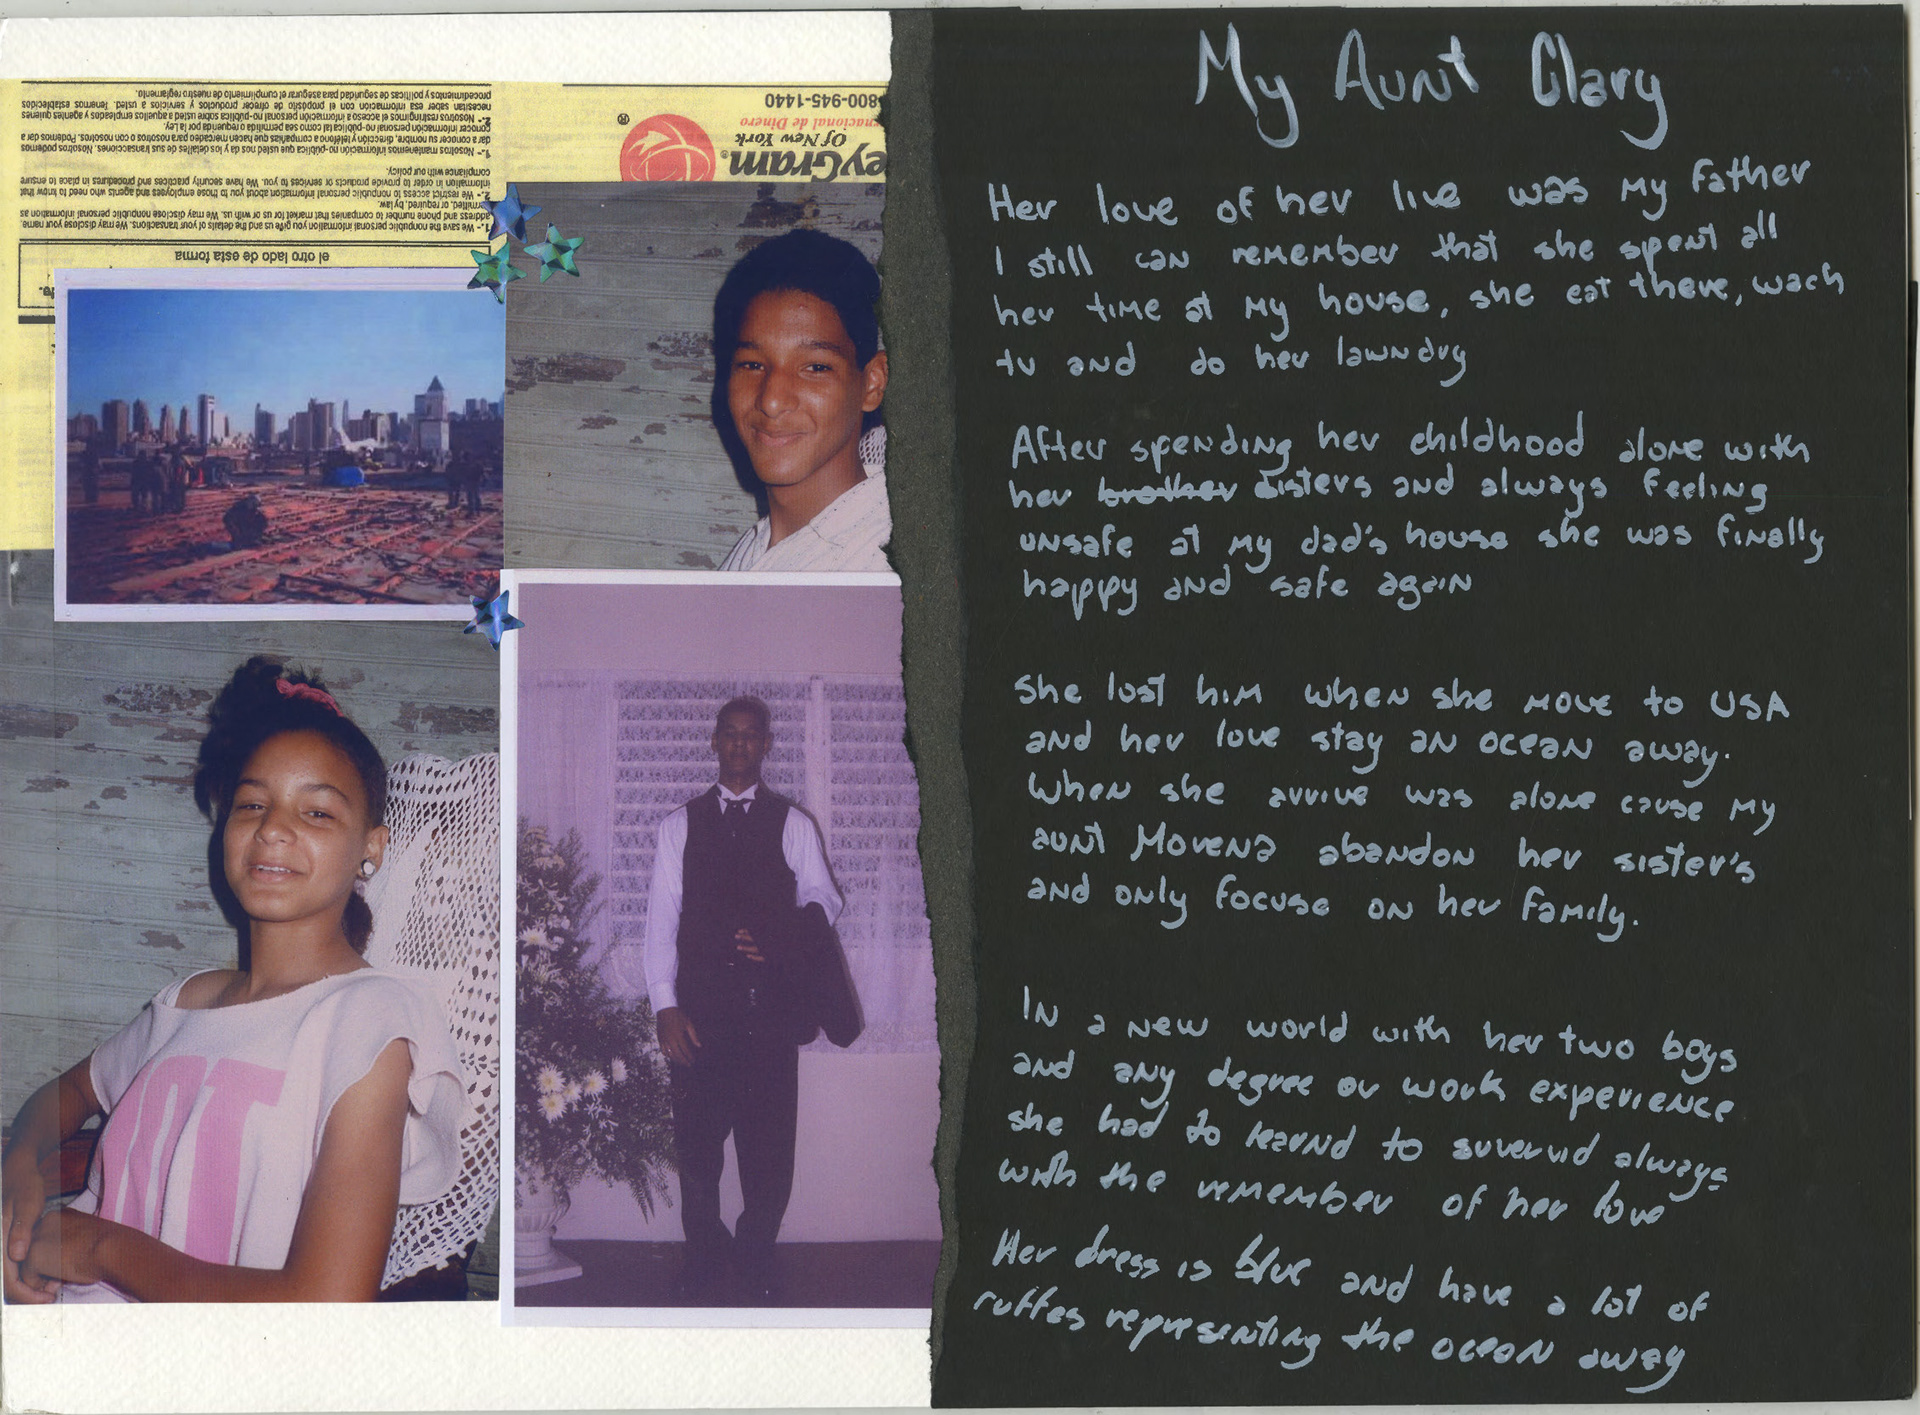 el otro lado de esta forma
1.- We save the nonpublic personal information you give us and the details of your transactions. We may disclose your name,
address and phone number to companies that market for us or with us. We may disclose nonpublic personal information as
permitted, or required, by law.
2.- We restrict access to nonpublic personal information about you to those employees and agents who need to know that
information in order to provide products or services to you. We have security practices and procedures in place to ensure
compliance with our policy.
1.- Nosotros mantenemos información no-pública que usted nos da y los detalles de sus transacciones. Nosotros podemos
dar a conocer su nombre, dirección y teléfono a compañias que hacen mercadeo para nosotros o con nosotros. Podemos dar a
conocer información personal no-pública tal como sea permitida o requerida por la Ley.
2.- Nosotros restringimos el acceso a información personal no-pública sobre usted a aquellos empleados y agentes quienes
necesitan saber esa información con el propósito de ofrecer productos y servicios a usted. Tenemos establecidos
procedimientos y políticas de seguridad para asegurar el cumplimiento de nuestro reglamento.
eyGram®
Of New York
rnacional de Dinero
800-945-1440
®
HOT
My Aunt Clary
Her love of her live was my father
I still can remember that she spent all
her time at my house, she eat there, wach
tv and do her lawndry
After spending her childhood alone with
her brother sisters and always feeling
unsafe at my dad's house she was finally
happy and safe again
She lost him when she move to USA
and her love stay an ocean away.
When she arrive was alone cause my
aunt Morena abandon her sister's
and only focuse on her family.
In a new world with her two boys
and any degree or work experience
she had to learnd to survervid always
with the remember of her love
Her dress is blue and have a lot of
ruffes representing the ocean away